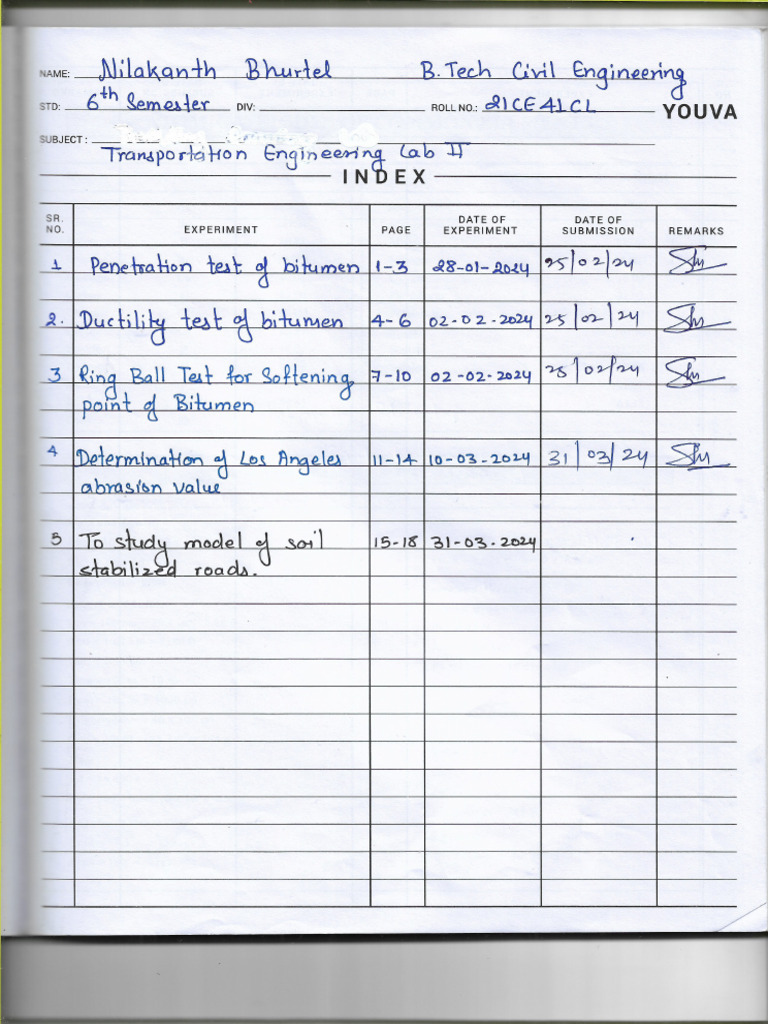 NAME: Nilakanth Bhurtel B.Tech Civil Engineering
STD: 6th Semester DIV: ROLL NO.: 21CE41CL YOUVA
SUBJECT:
Transportation Engineering Lab II
INDEX
SR. NO. EXPERIMENT PAGE DATE OF EXPERIMENT DATE OF SUBMISSION REMARKS
1 Penetration test of bitumen 1-3 28-01-2024 25/02/24
2. Ductility test of bitumen 4-6 02-02-2024 25/02/24
3 Ring Ball Test for Softening 7-10 02-02-2024 25/02/24
point of Bitumen
4 Determination of Los Angeles 11-14 10-03-2024 31/03/24
abrasion value
5 To study model of soil 15-18 31-03-2024
stabilized roads.